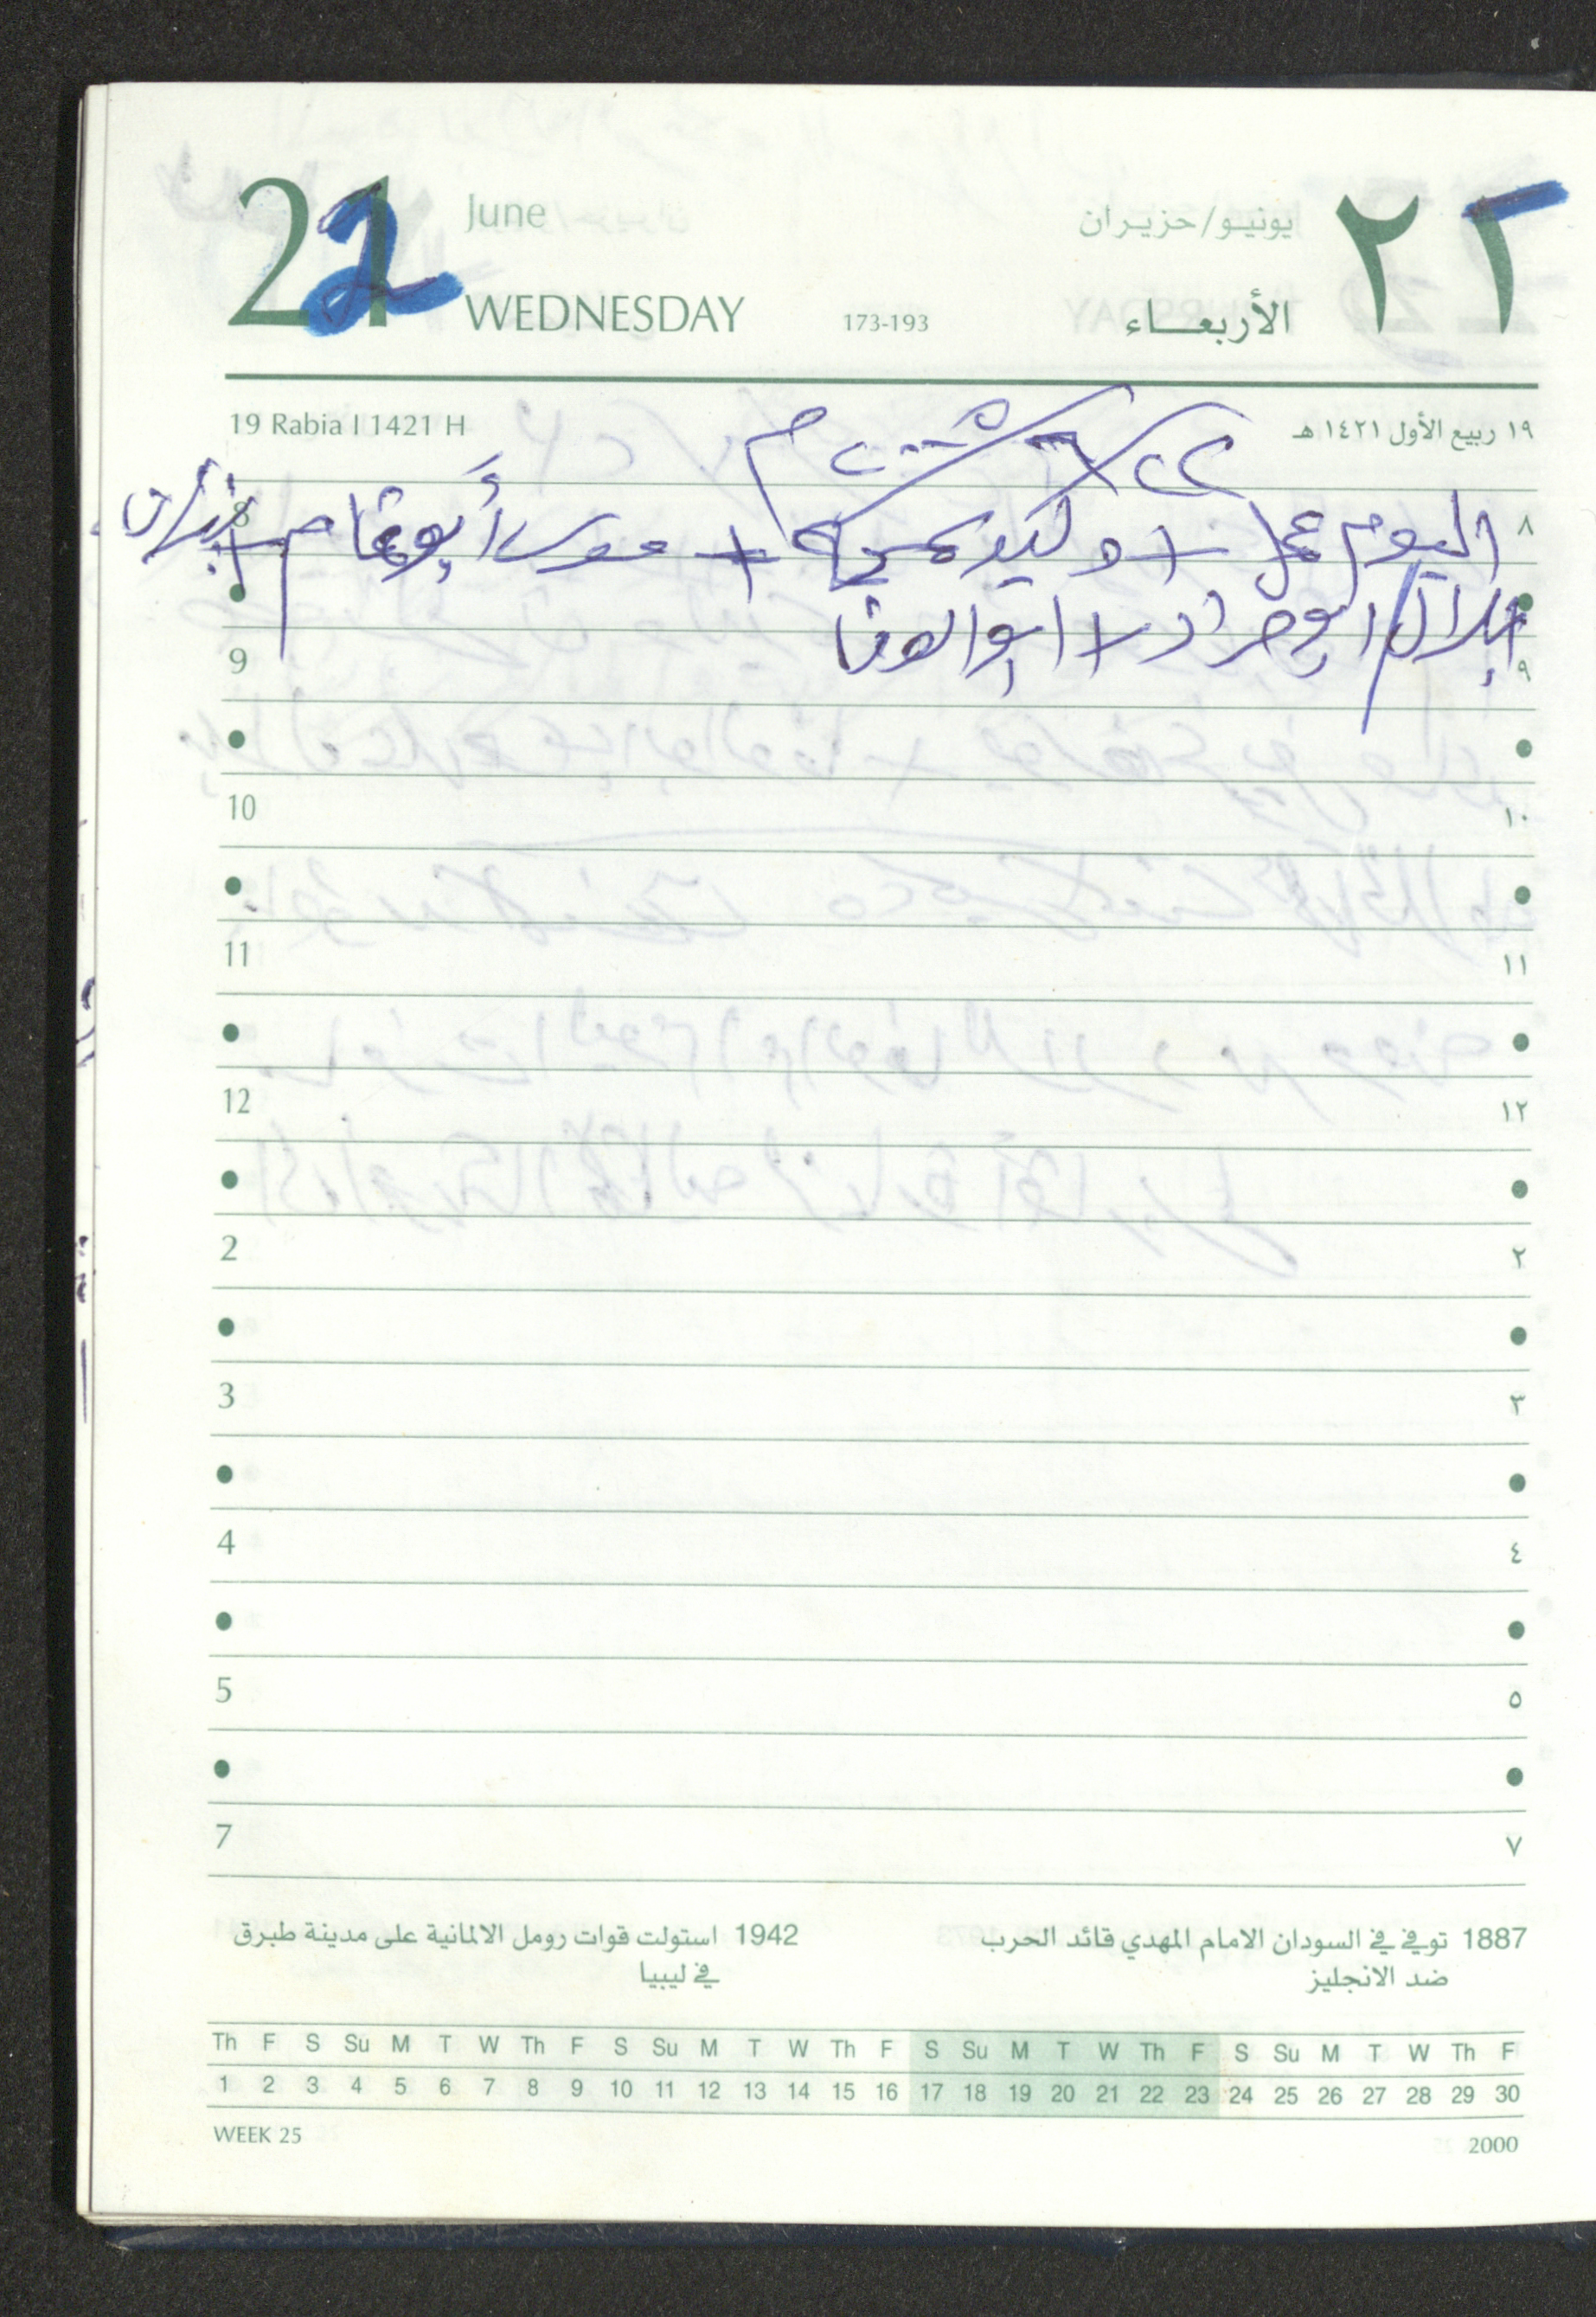 21 June يونيو/حزيران ٢٢
WEDNESDAY 173-193 الأربعاء
19 Rabia I 1421 H ١٩ ربيع الأول ١٤٢١ هـ
٢٢/٦/٢٠٠٥ م
اليوم عمل + وليد + موسى أبو +
بلال ابو مراد + ابو الوفا
8 ٨
9 ٩
10 ١٠
11 ١١
12 ١٢
2 ٢
3 ٣
4 ٤
5 ٥
7 ٧
1887 توفي في السودان الامام المهدي قائد الحرب
ضد الانجليز
1942 استولت قوات رومل الالمانية على مدينة طبرق
في ليبيا
Th F S Su M T W Th F S Su M T W Th F S Su M T W Th F S Su M T W Th F
1 2 3 4 5 6 7 8 9 10 11 12 13 14 15 16 17 18 19 20 21 22 23 24 25 26 27 28 29 30
WEEK 25 2000